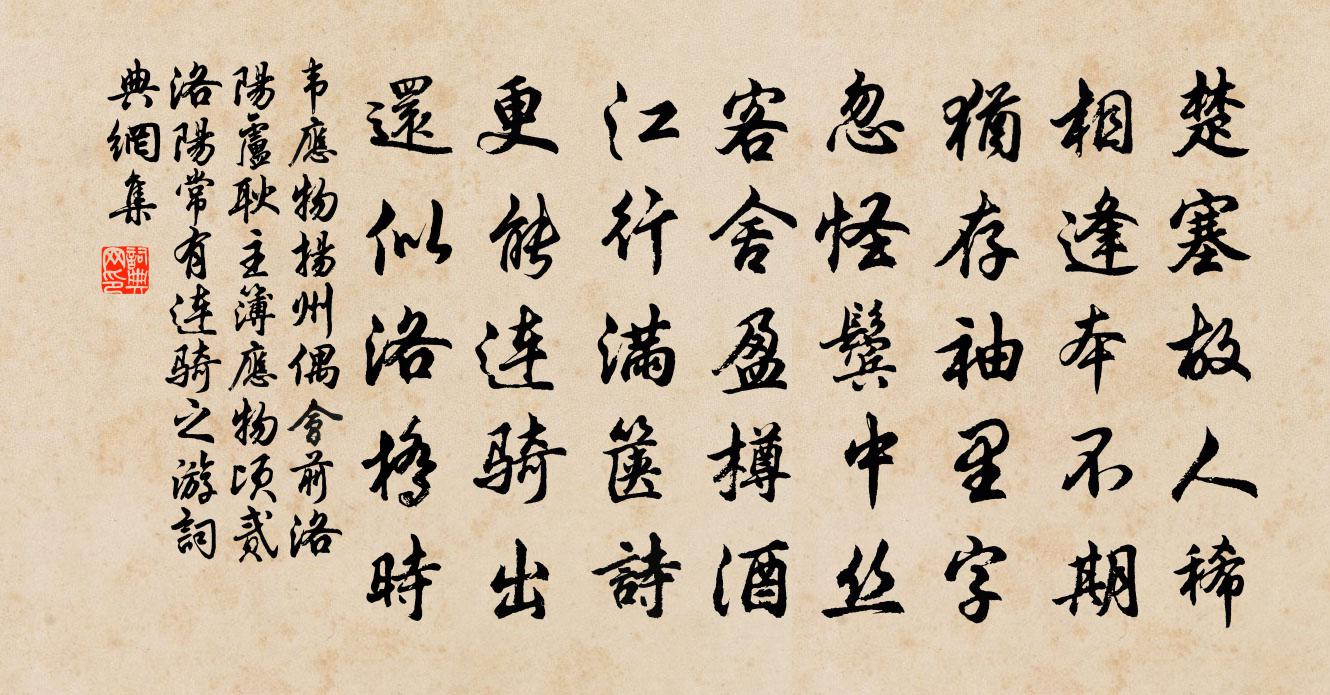 楚塞故人稀
相逢本不期
猶存袖里字
忽怪鬓中丝
客舍盈樽酒
江行滿箧詩
更能连骑出
還似洛橋時
韦應物揚州偶會前洛
陽盧耿主簿應物頃貳
洛陽常有连骑之游詞
典網集
詞典網印